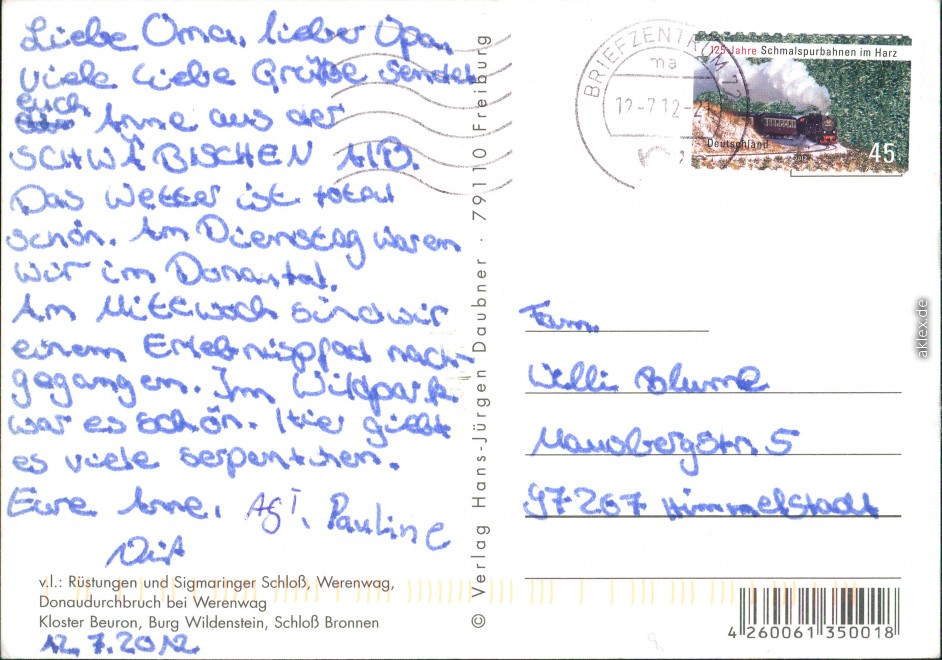 Liebe Oma, lieber Opa,
viele liebe Grüße sendet
euch
Anne aus der
SCHWÄBISCHEN ALB.
Das Wetter ist total
schön. Am Dienstag waren
wir im Donautal.
Am Mittwoch sind wir
einem Erlebnispfad nach-
gegangen. Im Wildpark
war es schön. Hier giebt
es viele serpentinen.
Eure Anne,
Pauline
v.l.: Rüstungen und Sigmaringer Schloß, Werenwag,
Donaudurchbruch bei Werenwag
Kloster Beuron, Burg Wildenstein, Schloß Bronnen
12.7.2012
© Verlag Hans-Jürgen Daubner · 79110 Freiburg
BRIEFZENTRUM
ma
12-7.12-21
125 Jahre Schmalspurbahnen im Harz
Deutschland
45
Fam.
Willi Blume
Mausbergstr. 5
97267 Himmelstadt
4 260061 350018
aklex.de